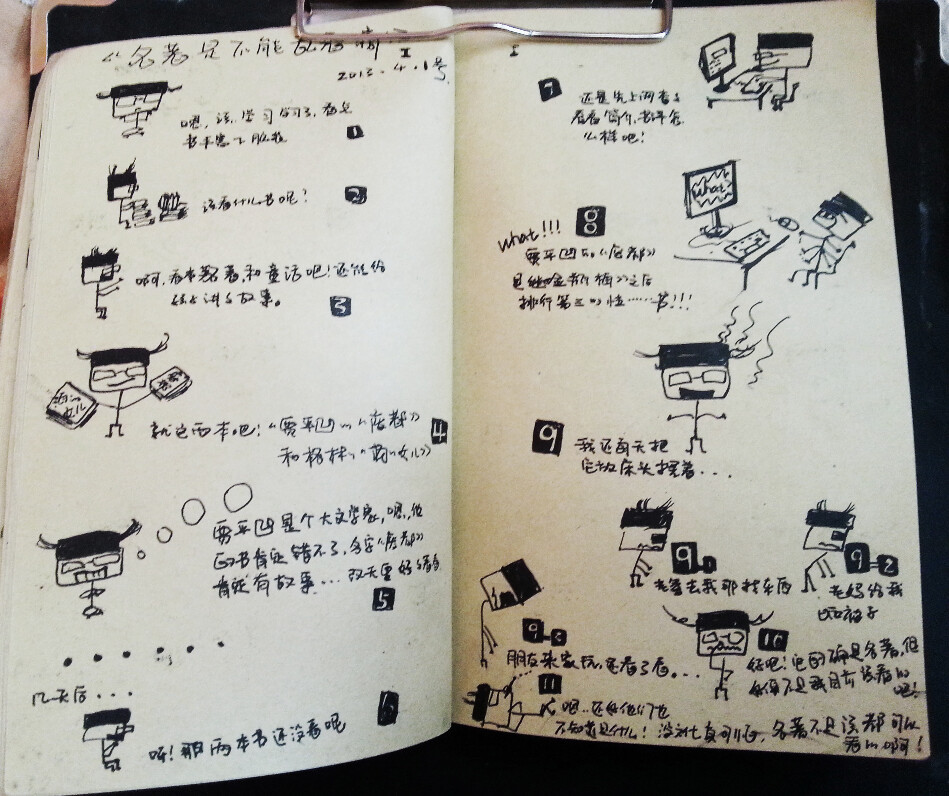 《名著是不能 I
2013.4.1号
嗯,该学习学习了,看点
书丰富下脑袋
1
该看什么书呢?
2
啊,看本名著和童话吧!还能给
讲讲故事。
3
就这两本吧!《贾平凹的《废都》
和杨林《女儿》
4
贾平凹是个大文学家,嗯,他
的书肯定错不了,名字《废都》
肯定有故事...改天要好好看看
5
几天后...
呀!那两本书还没看呢
6
I
7
还是先上网看看
看看简介,书评怎
么样吧!
What
8
What!!!
贾平凹的《废都》
是继《金瓶梅》之后
排行第三的性……书!!!
9
我还每天把
它放床头摆着...
9-1
老爸去我那找东西
9-2
老妈给我
9-3
朋友来家玩,还看了看...
10
好吧!它的确是名著,但
不是我目前该看的
吧!
11
嗯..还好他们也
不知道是什么!没文化真可怕,名著不是该都可以
看的啊!